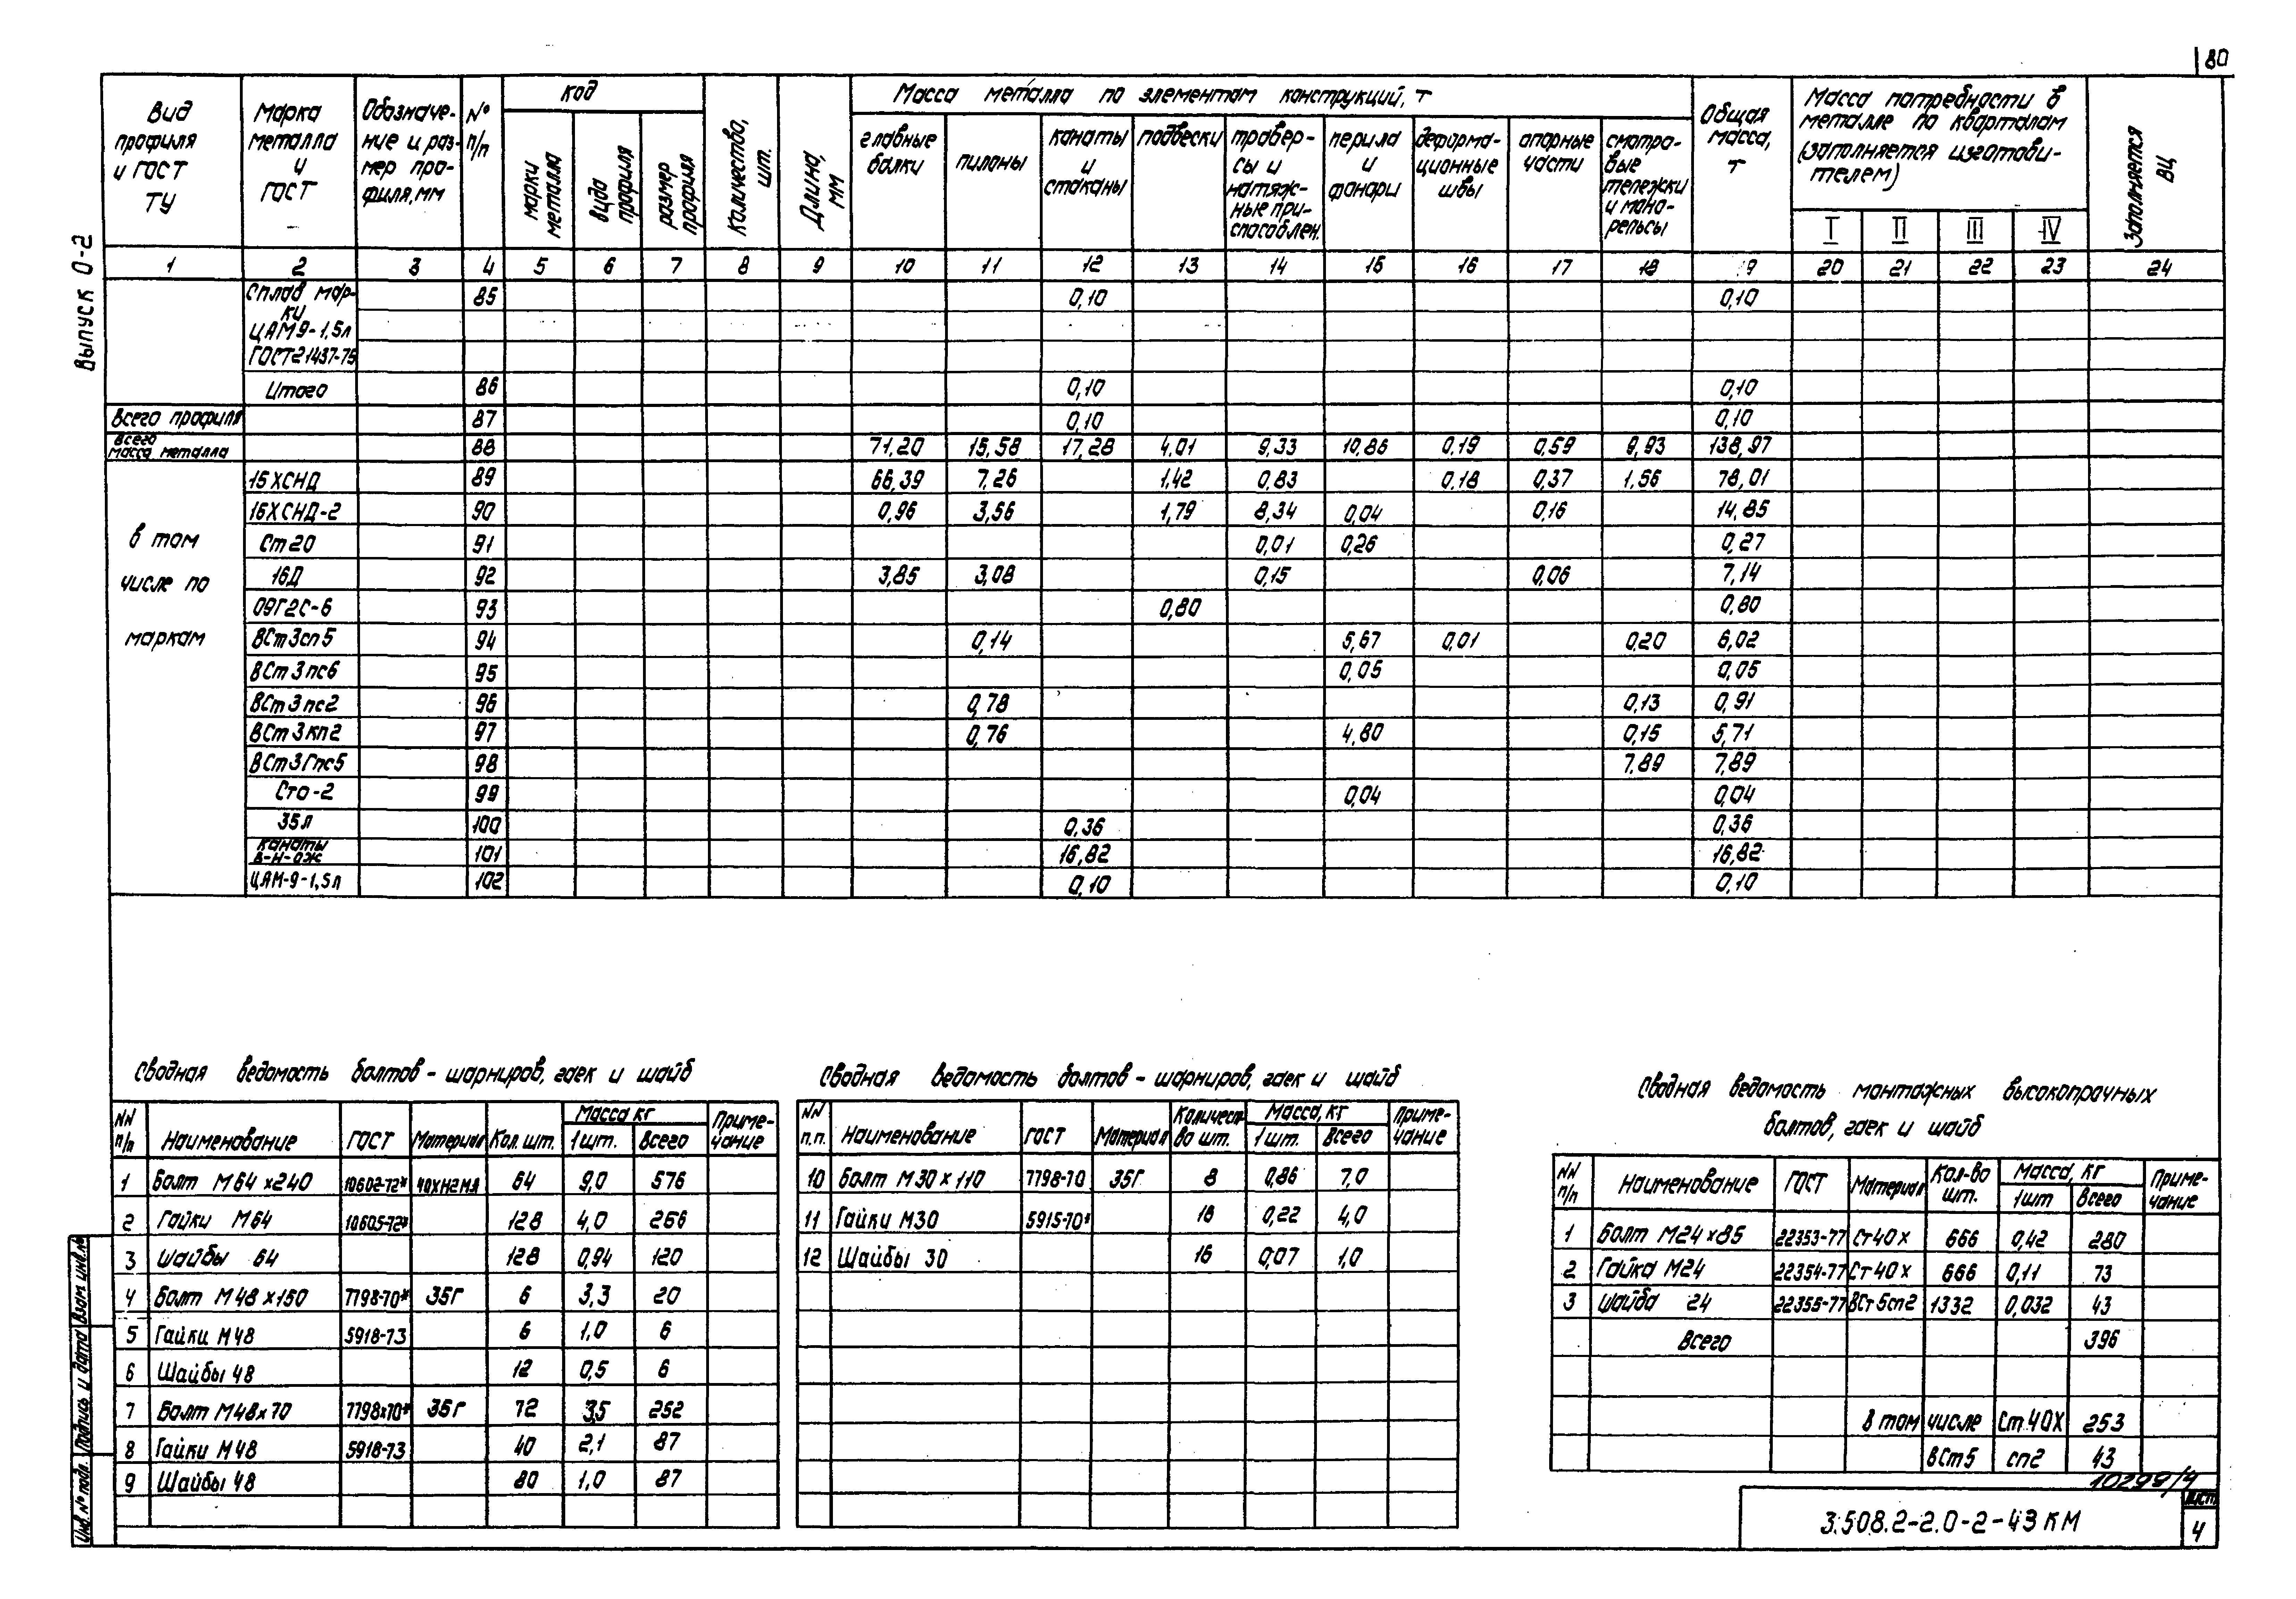 80
Выпуск 0-2
Вид профиля и ГОСТ ТУ | Марка металла и ГОСТ | Обозначе-ние и раз-мер про-филя, мм | № п/п | Код | Количество, шт. | Длина, мм | Масса металла по элементам конструкций, т | Общая масса, т | Масса потребности в металле по кварталам (заполняется изготови-телем) | Заполняется ВЦ
марки металла | вида профиля | размер профиля | главные балки | пилоны | канаты и стаканы | подвески | травер-сы и натяж-ные при-способлен. | перила и фонари | деформа-ционные швы | опорные части | смотро-вые тележки и моно-рельсы | I | II | III | IV
1 2 3 4 5 6 7 8 9 10 11 12 13 14 15 16 17 18 19 20 21 22 23 24
Сплав мар- 85 0,10 0,10
ки
ЦАМ9-1,5л
ГОСТ21437-75
Итого 86 0,10 0,10
Всего профиля 87 0,10 0,10
Всего масса металла 88 71,20 15,58 17,28 4,01 9,33 10,86 0,19 0,59 9,93 138,97
В том числе по маркам
15ХСНД 89 66,39 7,26 1,42 0,83 0,18 0,37 1,56 78,01
15ХСНД-2 90 0,96 3,56 1,79 8,34 0,04 0,16 14,85
Ст20 91 0,01 0,26 0,27
16Д 92 3,85 3,08 0,15 0,06 7,14
09Г2С-6 93 0,80 0,80
ВСт3сп5 94 0,14 5,67 0,01 0,20 6,02
ВСт3пс6 95 0,05 0,05
ВСт3пс2 96 0,78 0,13 0,91
ВСт3кп2 97 0,76 4,80 0,15 5,71
ВСт3Гпс5 98 7,89 7,89
Сто-2 99 0,04 0,04
35л 100 0,36 0,36
Канаты В-Н-ОЖ 101 16,82 16,82
ЦАМ-9-1,5л 102 0,10 0,10
Сводная ведомость болтов - шарниров, гаек и шайб
NN п/п | Наименование | ГОСТ | Материал | Кол. шт. | Масса кг | Приме-чание
1шт. | Всего
1 Болт М64х240 10602-72* 40ХН2МА 64 9,0 576
2 Гайки М64 10605-72* 128 4,0 256
3 Шайбы 64 128 0,94 120
4 Болт М48х150 7798-70* 35Г 6 3,3 20
5 Гайки М48 5918-73 6 1,0 6
6 Шайбы 48 12 0,5 6
7 Болт М48х70 7798х70* 35Г 72 3,5 252
8 Гайки М48 5918-73 40 2,1 87
9 Шайбы 48 80 1,0 87
Сводная ведомость болтов - шарниров, гаек и шайб
NN п.п. | Наименование | ГОСТ | Материал | Количест во шт. | Масса, кг | Приме-чание
1шт. | Всего
10 Болт М30х110 7798-70 35Г 8 0,86 7,0
11 Гайки М30 5915-70* 18 0,22 4,0
12 Шайбы 30 16 0,07 1,0
Сводная ведомость монтажных высокопрочных
болтов, гаек и шайб
NN п/п | Наименование | ГОСТ | Материал | Кол-во шт. | Масса, кг | Приме-чание
1шт | Всего
1 Болт М24х85 22353-77 Ст40х 666 0,42 280
2 Гайка М24 22354-77 Ст40х 666 0,11 73
3 Шайба 24 22355-77 ВСт5сп2 1332 0,032 43
Всего 396
В том числе Ст.40Х 253
ВСт5 сп2 43
10299/4
3.508.2-2.0-2-43КМ
Лист
4
Инв. № подл. Подпись и дата Взам. инв. №